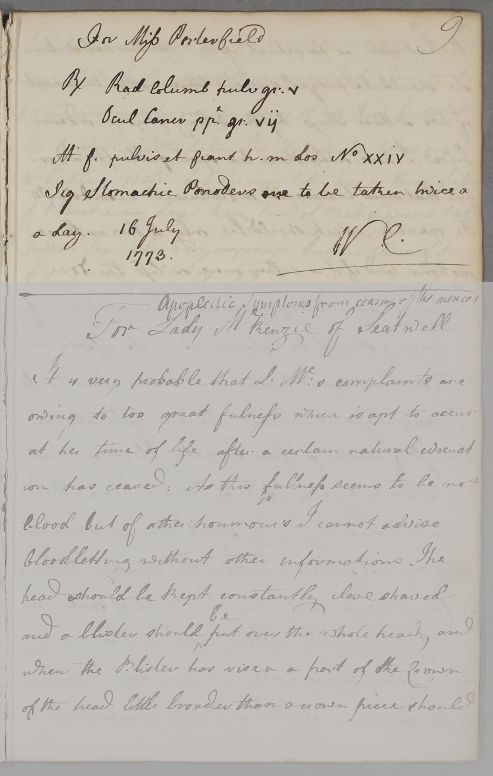 For Miss Porterfield
9
℞ Rad Columb pulv gr. v
Ocul Cancr ppt. gr. vij
M f. pulvis et fiant h. m dos No XXIV
Sig Stomachic Powders one to be taken twice a
a day. 16 July
1773.
W C.
Apoplectic Symptoms from ceasing of the menses
For Lady McKenzie of Seatwell
It is very probable that L: Mc:s complaints are
owing to too great fulness which is apt to occur
at her time of life after a certain natural evacuat
ion has ceased: As this fulness seems to be not
blood but of other houmours I cannot advise
bloodletting without other informations. The
head should be kept constantly close shaved
and a blister should be put over the whole head, and
when the Blister has risen a part of the Crown
of the head little broader than a crown piece should